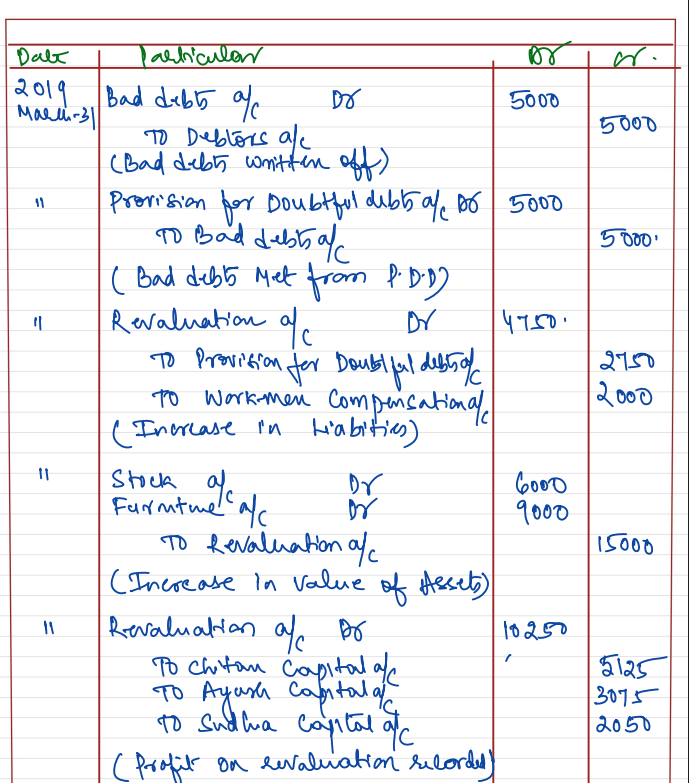 Date Particular Dr Cr.
2019 Bad debts a/c Dr 5000
March-31
To Debtors a/c 5000
(Bad debts written off)
" Provision for Doubtful debts a/c Dr 5000
To Bad debts a/c 5000.
(Bad debts Met from P.D.D)
" Revaluation a/c Dr 4750.
To Provision for Doubtful debts a/c 2750
To Workmen Compensation a/c 2000
(Increase in Liabities)
" Stock a/c Dr 6000
Furniture a/c Dr 9000
To Revaluation a/c 15000
(Increase in value of Assets)
" Revaluation a/c Dr 10250
To Chitan Capital a/c 5125
To Ayush Capital a/c 3075
To Sudha Capital a/c 2050
(Profit on revaluation recorded)